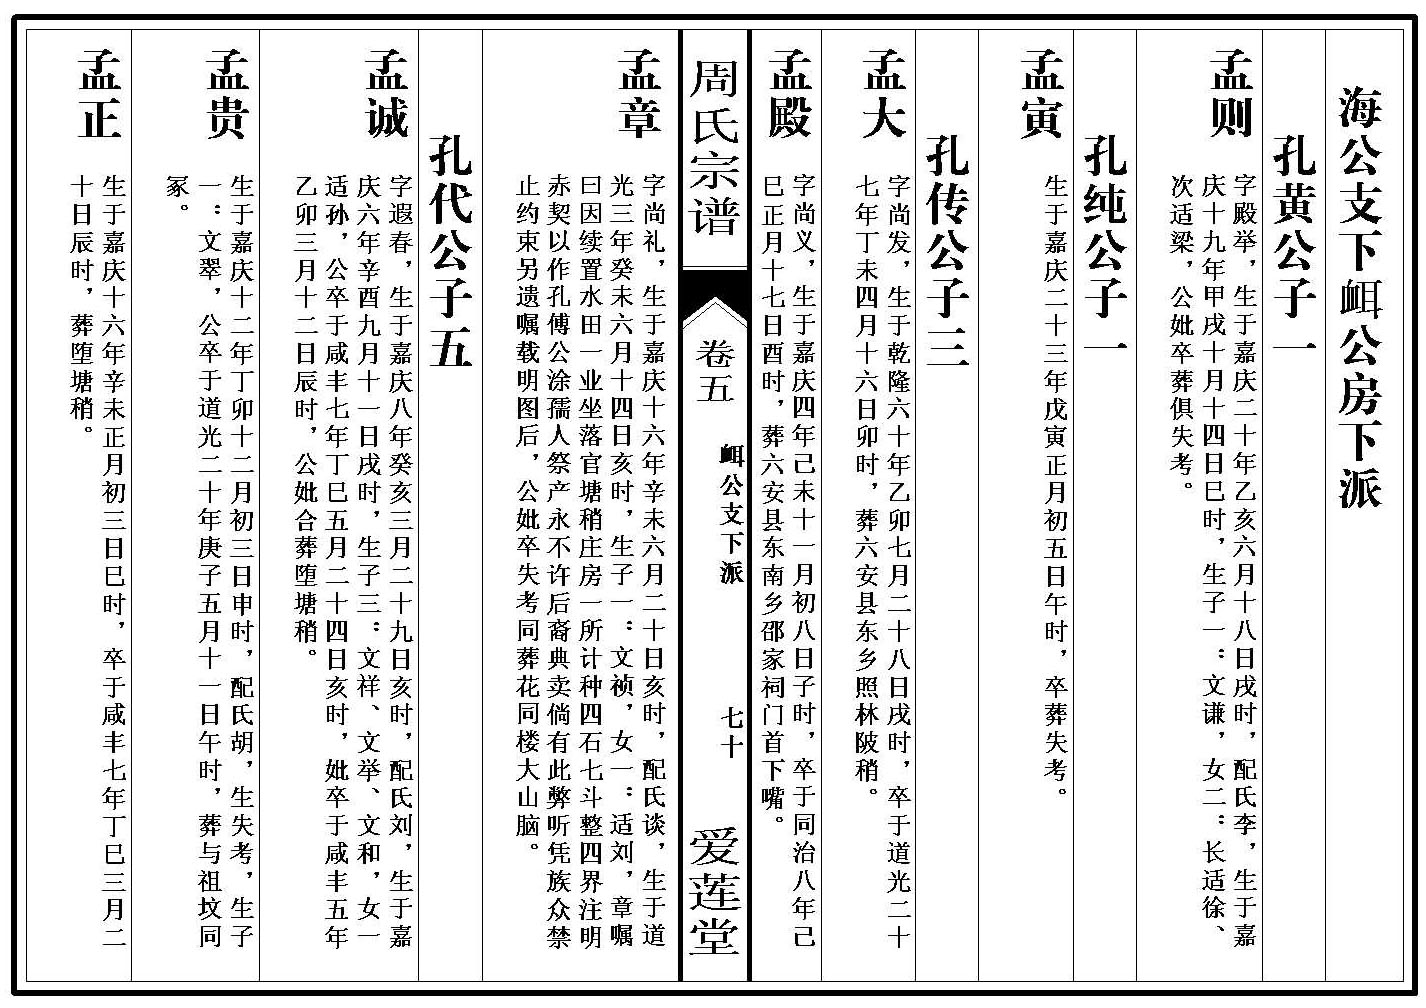 海公支下衈公房下派
孔黄公子一
孟则
字殿举，生于嘉庆二十年乙亥六月十八日戌时，配氏李，生于嘉
庆十九年甲戌十月十四日巳时，生子一：文谦，女二：长适徐、
次适梁，公妣卒葬俱失考。
孔纯公子一
孟寅
生于嘉庆二十三年戊寅正月初五日午时，卒葬失考。
孔传公子三
孟大
字尚发，生于乾隆六十年乙卯七月二十八日戌时，卒于道光二十
七年丁未四月十六日卯时，葬六安县东乡照林陂稍。
孟殿
字尚义，生于嘉庆四年己未十一月初八日子时，卒于同治八年己
巳正月十七日酉时，葬六安县东南乡邵家祠门首下嘴。
周氏宗谱
卷五
衈公支下派
七十
爱莲堂
孟章
字尚礼，生于嘉庆十六年辛未六月二十日亥时，配氏谈，生于道
光三年癸未六月十四日亥时，生子一：文祯，女一：适刘，章嘱
曰因续置水田一业坐落官塘稍庄房一所计种四石七斗整四界注明
赤契以作孔傅公涂孺人祭产永不许后裔典卖倘有此弊听凭族众禁
止约束另遗嘱载明图后，公妣卒失考同葬花同楼大山脑。
孔代公子五
孟诚
字遐春，生于嘉庆八年癸亥三月二十九日亥时，配氏刘，生于嘉
庆六年辛酉九月十一日戌时，生子三：文祥、文举、文和，女一
适孙，公卒于咸丰七年丁巳五月二十四日亥时，妣卒于咸丰五年
乙卯三月十二日辰时，公妣合葬堕塘稍。
孟贵
生于嘉庆十二年丁卯十二月初三日申时，配氏胡，生失考，生子
一：文翠，公卒于道光二十年庚子五月十一日午时，葬与祖坟同
冢。
孟正
生于嘉庆十六年辛未正月初三日巳时，卒于咸丰七年丁巳三月二
十日辰时，葬堕塘稍。